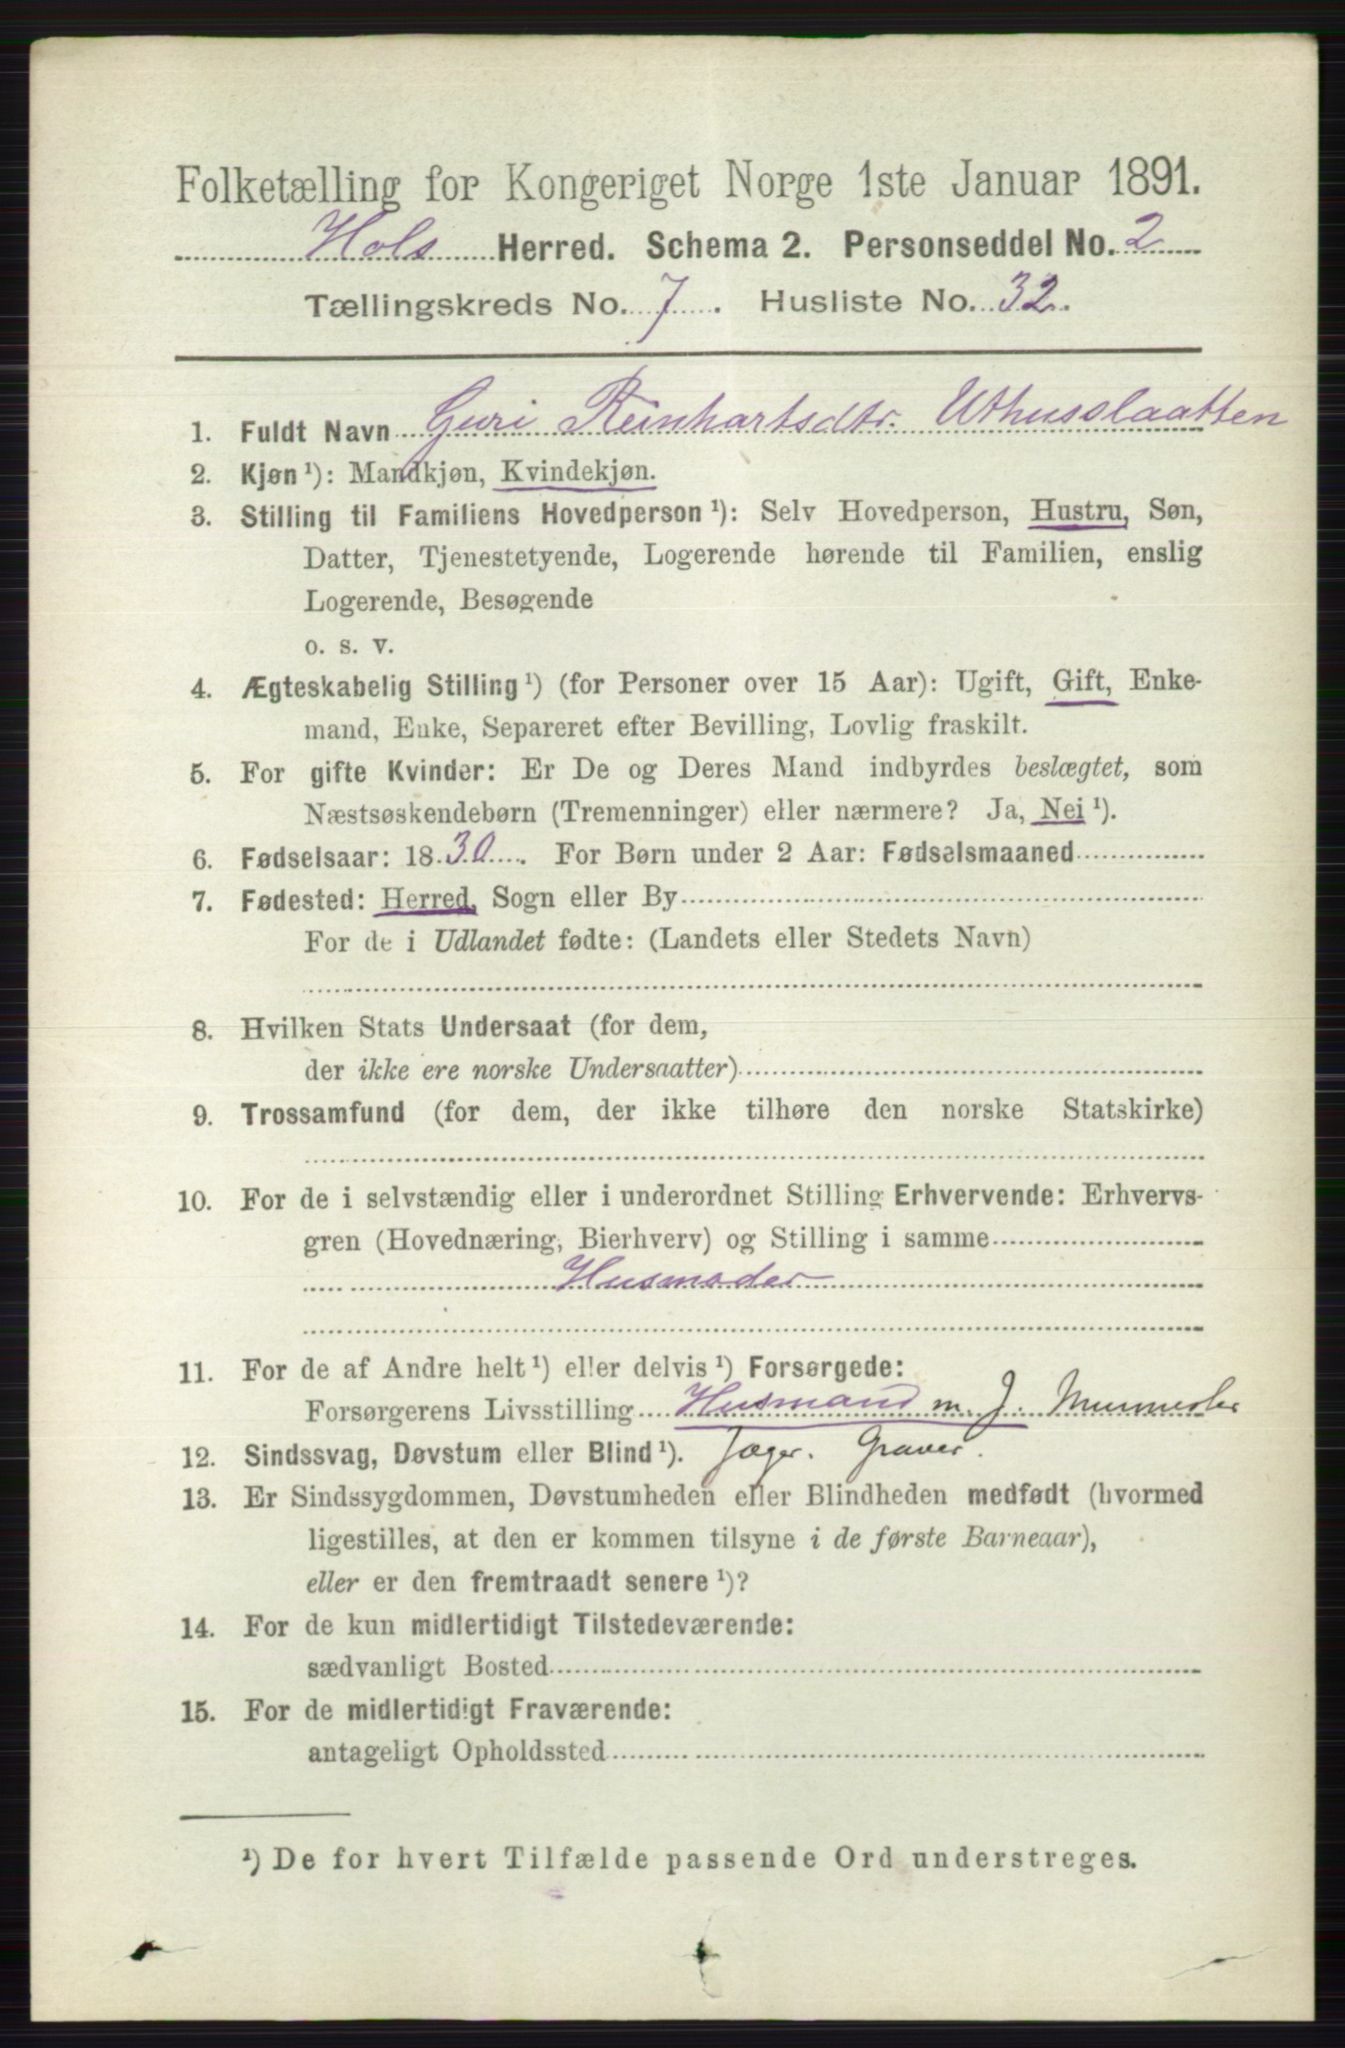 Folketælling for Kongeriget Norge 1ste Januar 1891.
Hols Herred. Schema 2. Personseddel No. 2
Tællingskreds No. 7. Husliste No. 32.
1. Fuldt Navn Guri Reinhartsdtr. Uthusslaatten
2. Kjøn ¹): Mandkjøn, Kvindekjøn.
3. Stilling til Familiens Hovedperson ¹): Selv Hovedperson, Hustru, Søn,
Datter, Tjenestetyende, Logerende hørende til Familien, enslig
Logerende, Besøgende
o. s. v.
4. Ægteskabelig Stilling ¹) (for Personer over 15 Aar): Ugift, Gift, Enke-
mand, Enke, Separeret efter Bevilling, Lovlig fraskilt.
5. For gifte Kvinder: Er De og Deres Mand indbyrdes beslægtet, som
Næstsøskendebørn (Tremenninger) eller nærmere? Ja, Nei ¹).
6. Fødselsaar: 1830. For Børn under 2 Aar: Fødselsmaaned
7. Fødested: Herred, Sogn eller By
For de i Udlandet fødte: (Landets eller Stedets Navn)
8. Hvilken Stats Undersaat (for dem,
der ikke ere norske Undersaatter)
9. Trossamfund (for dem, der ikke tilhøre den norske Statskirke)
10. For de i selvstændig eller i underordnet Stilling Erhvervende: Erhvervs-
gren (Hovednæring, Bierhverv) og Stilling i samme
Husmoder
11. For de af Andre helt ¹) eller delvis ¹) Forsørgede:
Forsørgerens Livsstilling Husmand m. J.
12. Sindssvag, Døvstum eller Blind ¹). Jæger. Graver.
13. Er Sindssygdommen, Døvstumheden eller Blindheden medfødt (hvormed
ligestilles, at den er kommen tilsyne i de første Barneaar),
eller er den fremtraadt senere ¹)?
14. For de kun midlertidigt Tilstedeværende:
sædvanligt Bosted
15. For de midlertidigt Fraværende:
antageligt Opholdssted
¹) De for hvert Tilfælde passende Ord understreges.